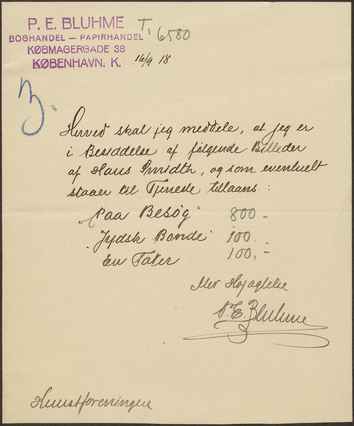 P. E. BLUHME
BOGHANDEL — PAPIRHANDEL
KØBMAGERGADE 38
KØBENHAVN. K.
T. 6580
16/9 18
3.
Herved skal jeg meddele, at jeg er
i Besiddelse af følgende Billeder
af Hans Smidth, og som eventuelt
staaer til Tjeneste tillaans:
"Paa Besøg" 800 -
"Jydsk Bonde" 100 -
En Tater 100, -
Med Højagtelse
P. E. Bluhme
Kunstforeningen